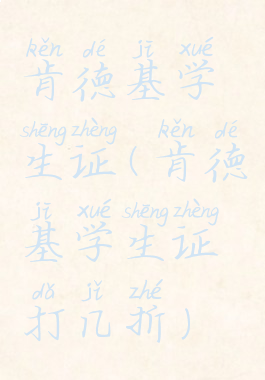 kěn dé jī xué
肯德基学
shēng zhèng kěn dé
生证(肯德
jī xué shēng zhèng
基学生证
dǎ jǐ zhé
打几折)